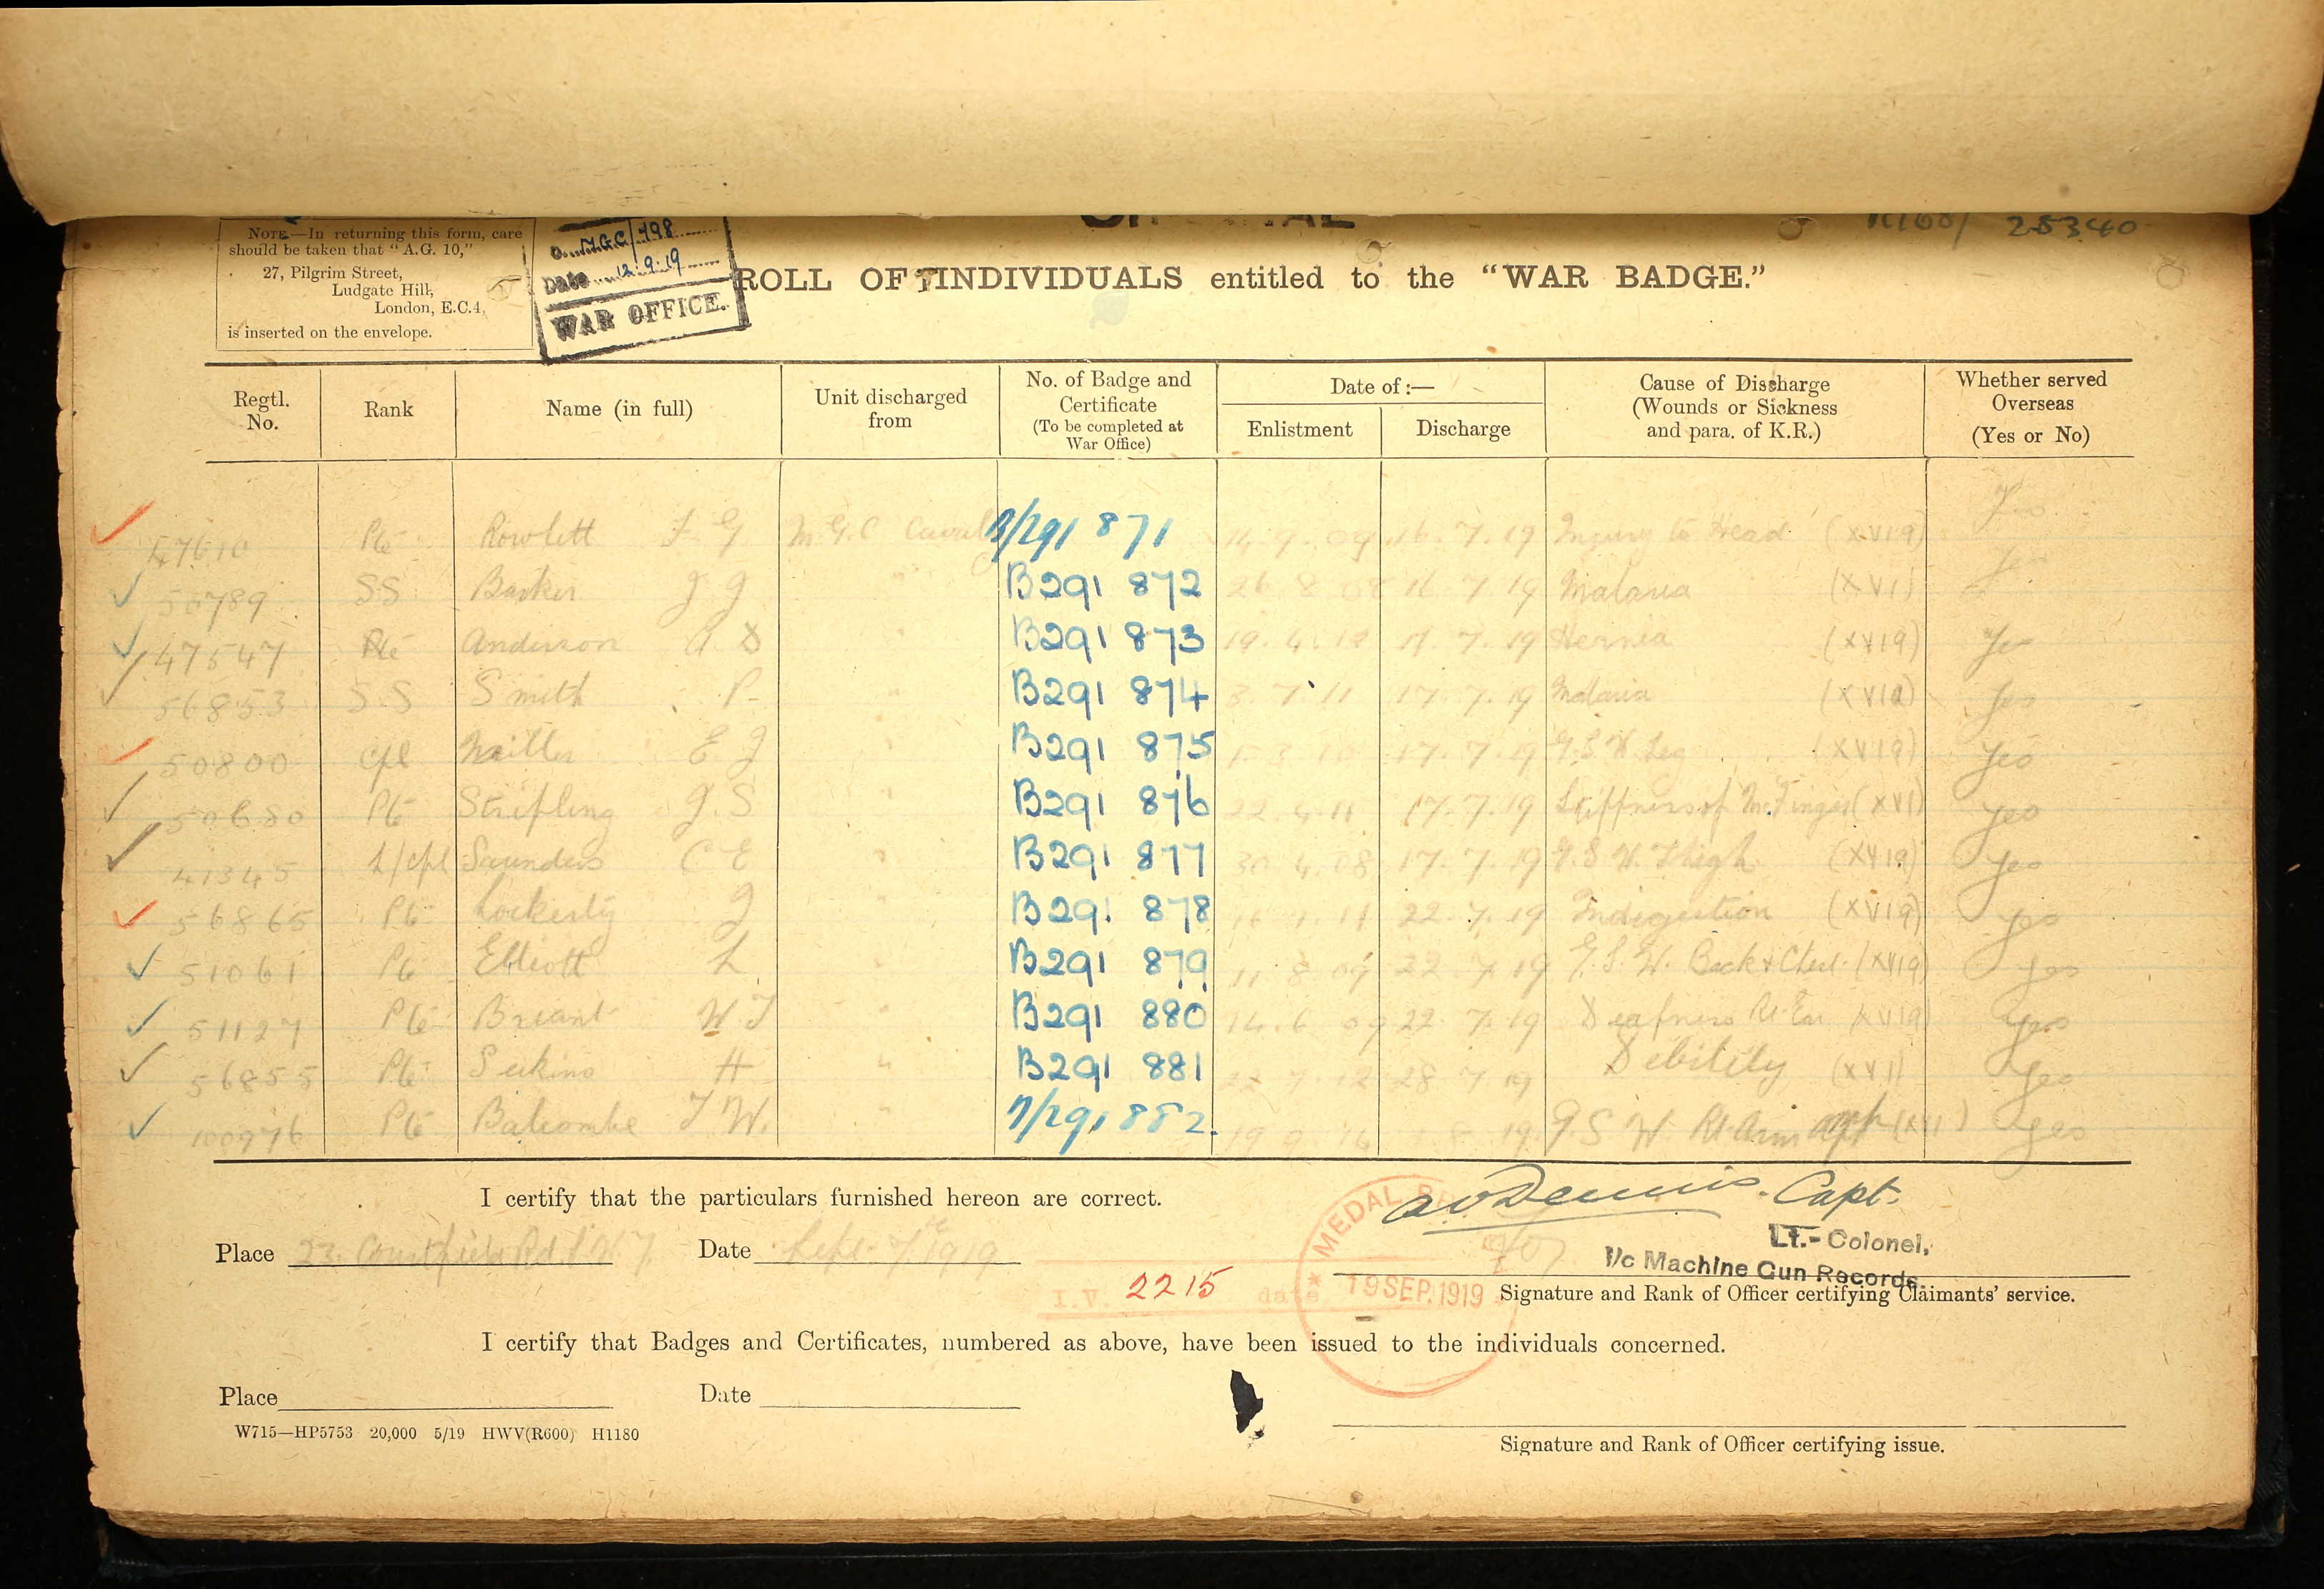 NOTE.—In returning this form, care
should be taken that "A.G. 10,"
27, Pilgrim Street,
Ludgate Hill,
London, E.C.4,
is inserted on the envelope.
M.G.C/798
Date 12.9.19
WAR OFFICE.
28340
ROLL OF INDIVIDUALS entitled to the "WAR BADGE."
Regtl. No. Rank Name (in full) Unit discharged from No. of Badge and Certificate (To be completed at War Office) Date of:— Enlistment Discharge Cause of Discharge (Wounds or Sickness and para. of K.R.) Whether served Overseas (Yes or No)
47610 Pte Rowlett F G M.G.C Caval B/291 871 14.9.09 16.7.19 Injury to Head (XVIa) Yes
50789 SS Barker J J " B291 872 26 8 08 16 7 19 Malaria (XVI) Yes
47547 Pte Anderson A D " B291 873 19.4.12 17.7.19 Hernia (XVIa) Yes
56853 S.S Smith P. " B291 874 3.7.11 17.7.19 Malaria (XVIa) Yes
50800 Cpl Miller E J " B291 875 17.7.19 G.S.W Leg (XVIa) Yes
50680 Pte Stripling J.S " B291 876 22.4.11 17.7.19 Stiffness of M. Finger (XVI) Yes
41345 L/Cpl Saunders C E " B291 877 30.4.08 17.7.19 G.S.W. Thigh (XVIa) Yes
56865 Pte Lockerty J " B291 878 22.7.19 Indigestion (XVIa) Yes
51061 Pte Elliott L " B291 879 11 8 09 22 7 19 G.S.W. Back & Chest (XVIa) Yes
51127 Pte Briant W J " B291 880 14.6 09 22 7 19 Deafness Rt. Ear (XVIa) Yes
56855 Pte H " B291 881 22 7 12 28 7 19 Debility (XVI) Yes
100976 Pte Balcombe T W. " B/291 882. 19 16 19 G S W Rt Arm (XVI) Yes
I certify that the particulars furnished hereon are correct.
Dennis. Capt.
Lt.-Colonel,
I/c Machine Gun Records.
Place Date Sept. 1919
I.V. 2215 date
MEDAL
19 SEP. 1919
Signature and Rank of Officer certifying Claimants' service.
I certify that Badges and Certificates, numbered as above, have been issued to the individuals concerned.
Place Date
W715—HP5753 20,000 5/19 HWV(R600) H1180
Signature and Rank of Officer certifying issue.